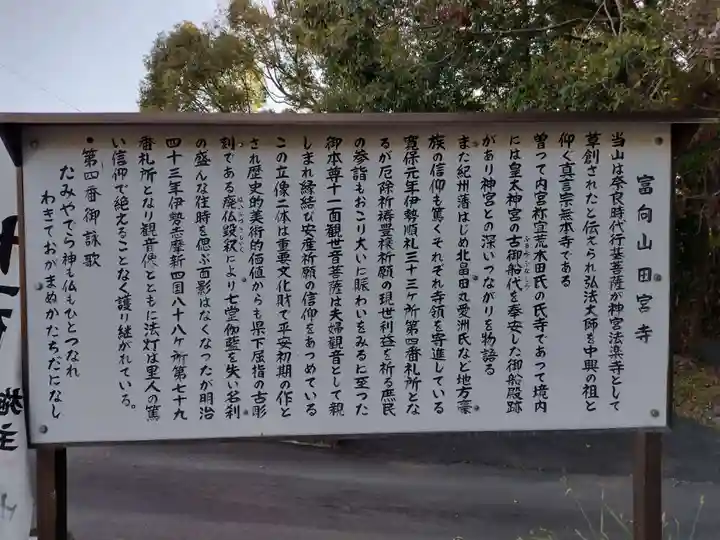 富向山田宮寺
当山は奈良時代行基菩薩が神宮法楽寺として
草創されたと伝えられ弘法大師を中興の祖と
仰ぐ真言宗無本寺である
曽って内宮祢宜荒木田氏の氏寺であって境内
には皇太神宮の古御船代を奉安した御船殿跡
があり神宮との深いつながりを物語る
また紀州藩はじめ北畠田丸愛洲氏など地方豪
族の信仰も篤くそれぞれ寺領を寄進している
寛保元年伊勢順礼三十三ヶ所第四番札所とな
るが厄除祈祷豊穣祈願の現世利益を祈る庶民
の参詣もおこり大いに賑わいをみるに至った
御本尊十一面観世音菩薩は夫婦観音として親
しまれ縁結び安産祈願の信仰をあつめている
この立像二体は重要文化財で平安初期の作と
され歴史的美術的価値からも県下屈指の古彫
刻である廃仏毀釈により七堂伽藍を失い名利
の盛んな往時を偲ぶ面影はなくなったが明治
四十三年伊勢志摩新四国八十八ヶ所第七十九
番札所となり観音様とともに法灯は里人の篤
い信仰で絶えることなく護り継がれている。
・第四番御詠歌
たみやでら神も仏もひとつなれ
わきておがまめかたちだになし
施主